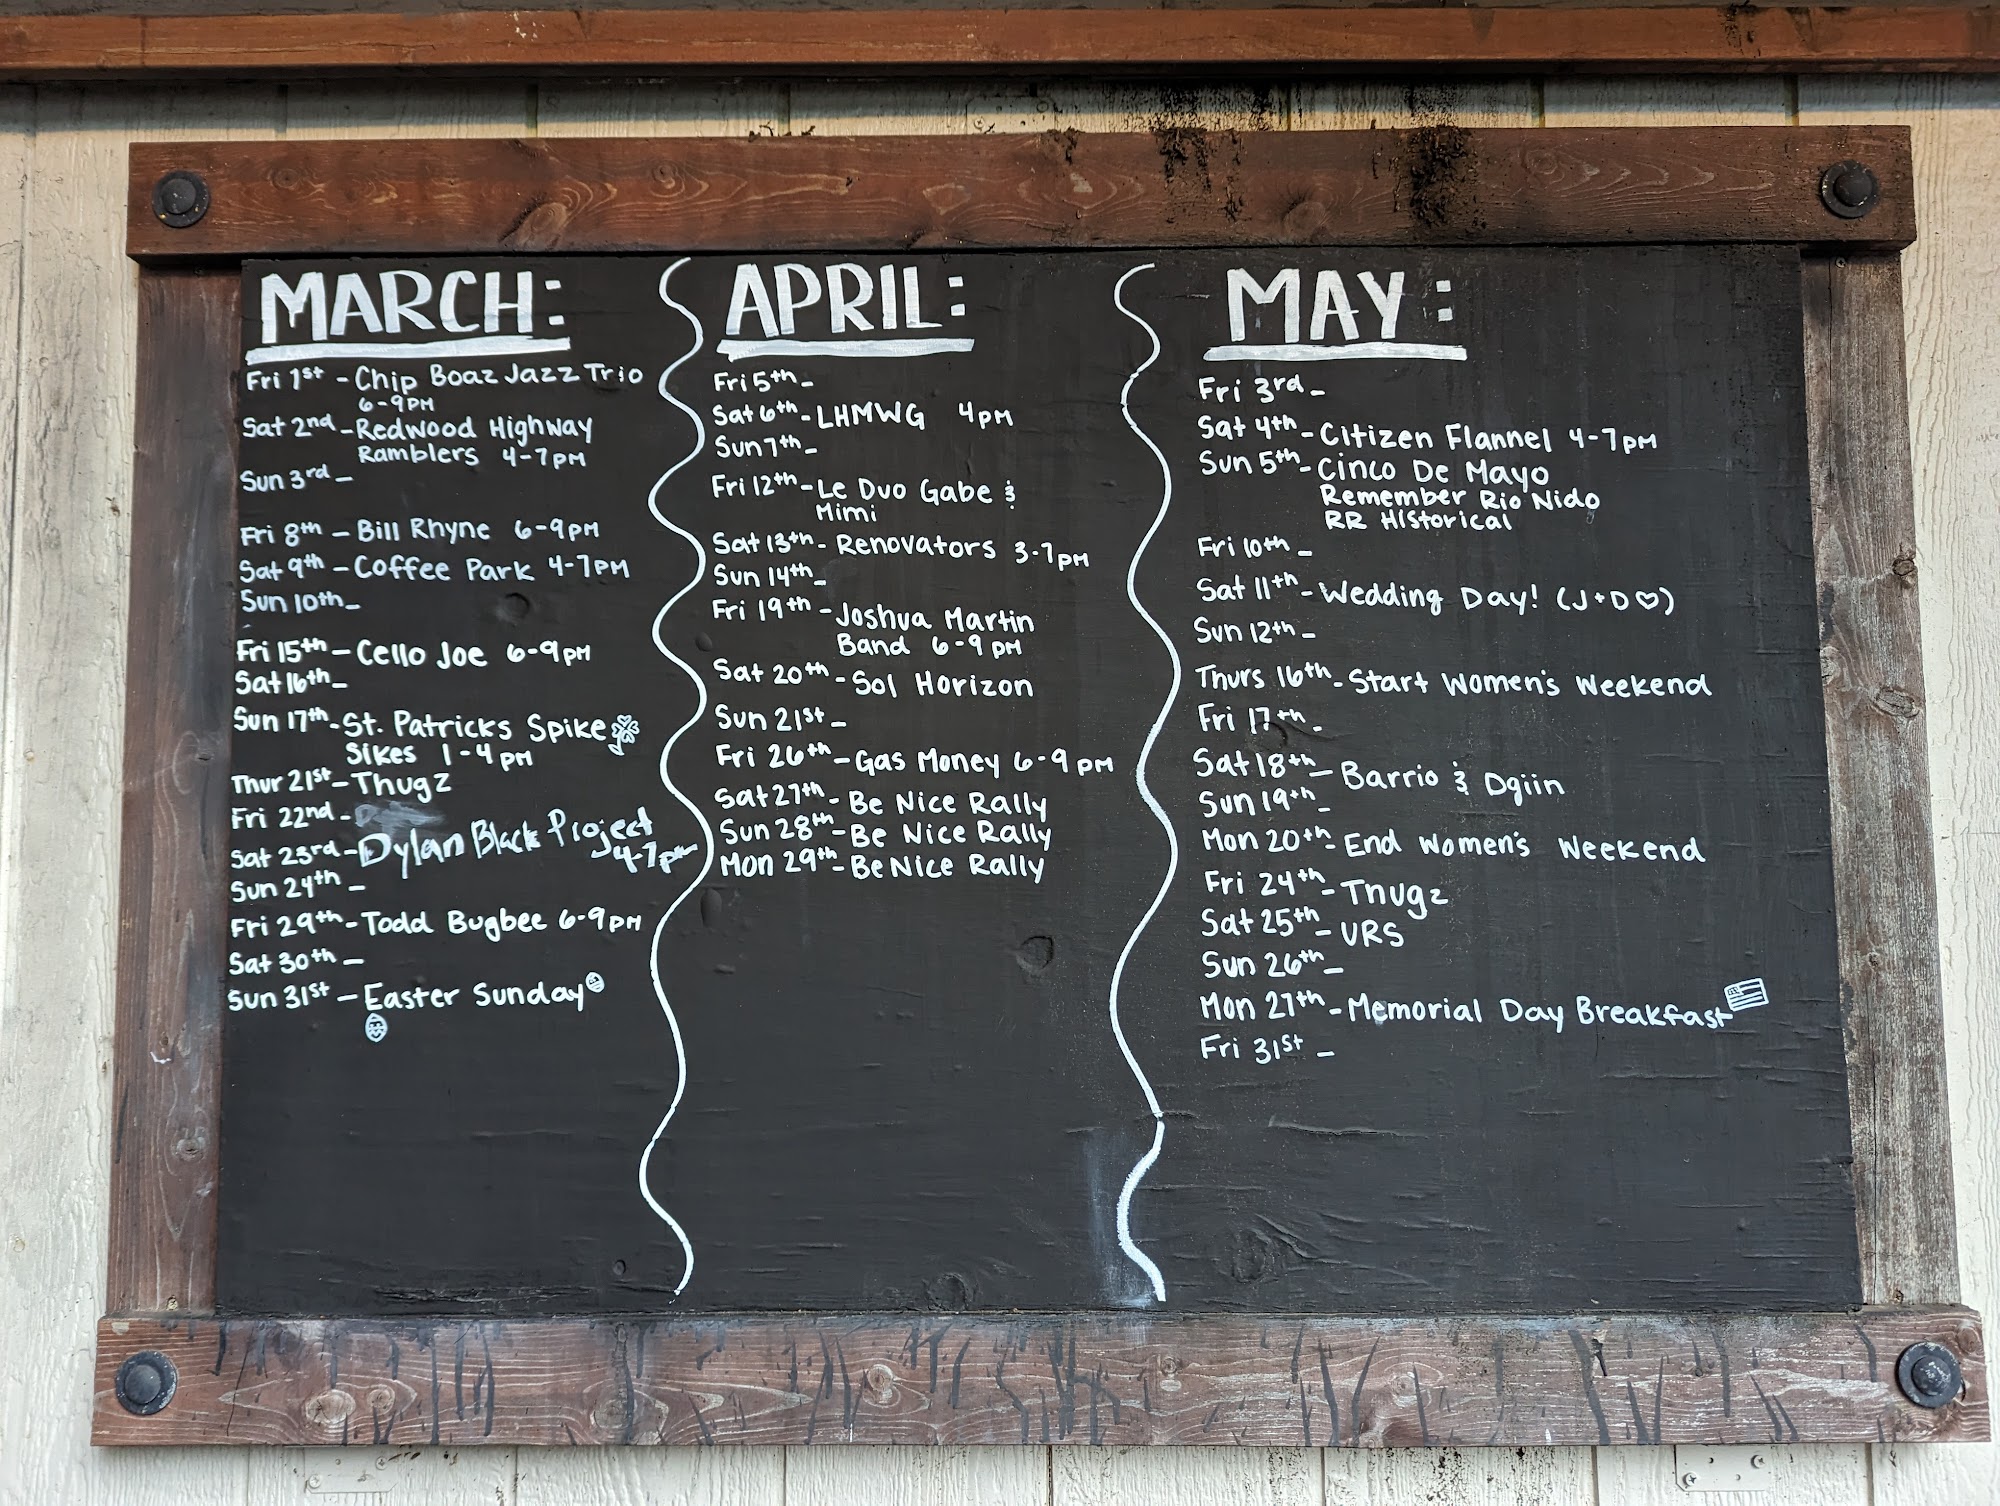 MARCH:
Fri 1st - Chip Boaz Jazz Trio
6-9PM
Sat 2nd - Redwood Highway
Ramblers 4-7PM
Sun 3rd -
Fri 8th - Bill Rhyne 6-9PM
Sat 9th - Coffee Park 4-7PM
Sun 10th -
Fri 15th - Cello Joe 6-9PM
Sat 16th -
Sun 17th - St. Patricks Spike
Sikes 1-4PM
Thur 21st - Thugz
Fri 22nd -
Sat 23rd - Dylan Black Project
4-7pm
Sun 24th -
Fri 29th - Todd Bugbee 6-9PM
Sat 30th -
Sun 31st - Easter Sunday
APRIL:
Fri 5th -
Sat 6th - LHMWG 4PM
Sun 7th -
Fri 12th - Le Duo Gabe &
Mimi
Sat 13th - Renovators 3-7PM
Sun 14th -
Fri 19th - Joshua Martin
Band 6-9PM
Sat 20th - Sol Horizon
Sun 21st -
Fri 26th - Gas Money 6-9PM
Sat 27th - Be Nice Rally
Sun 28th - Be Nice Rally
Mon 29th - Be Nice Rally
MAY:
Fri 3rd -
Sat 4th - Citizen Flannel 4-7PM
Sun 5th - Cinco De Mayo
Remember Rio Nido
RR Historical
Fri 10th -
Sat 11th - Wedding Day! (J+D♡)
Sun 12th -
Thurs 16th - Start Women's Weekend
Fri 17th -
Sat 18th - Barrio & Dgiin
Sun 19th -
Mon 20th - End Women's Weekend
Fri 24th - Thugz
Sat 25th - VRS
Sun 26th -
Mon 27th - Memorial Day Breakfast
Fri 31st -